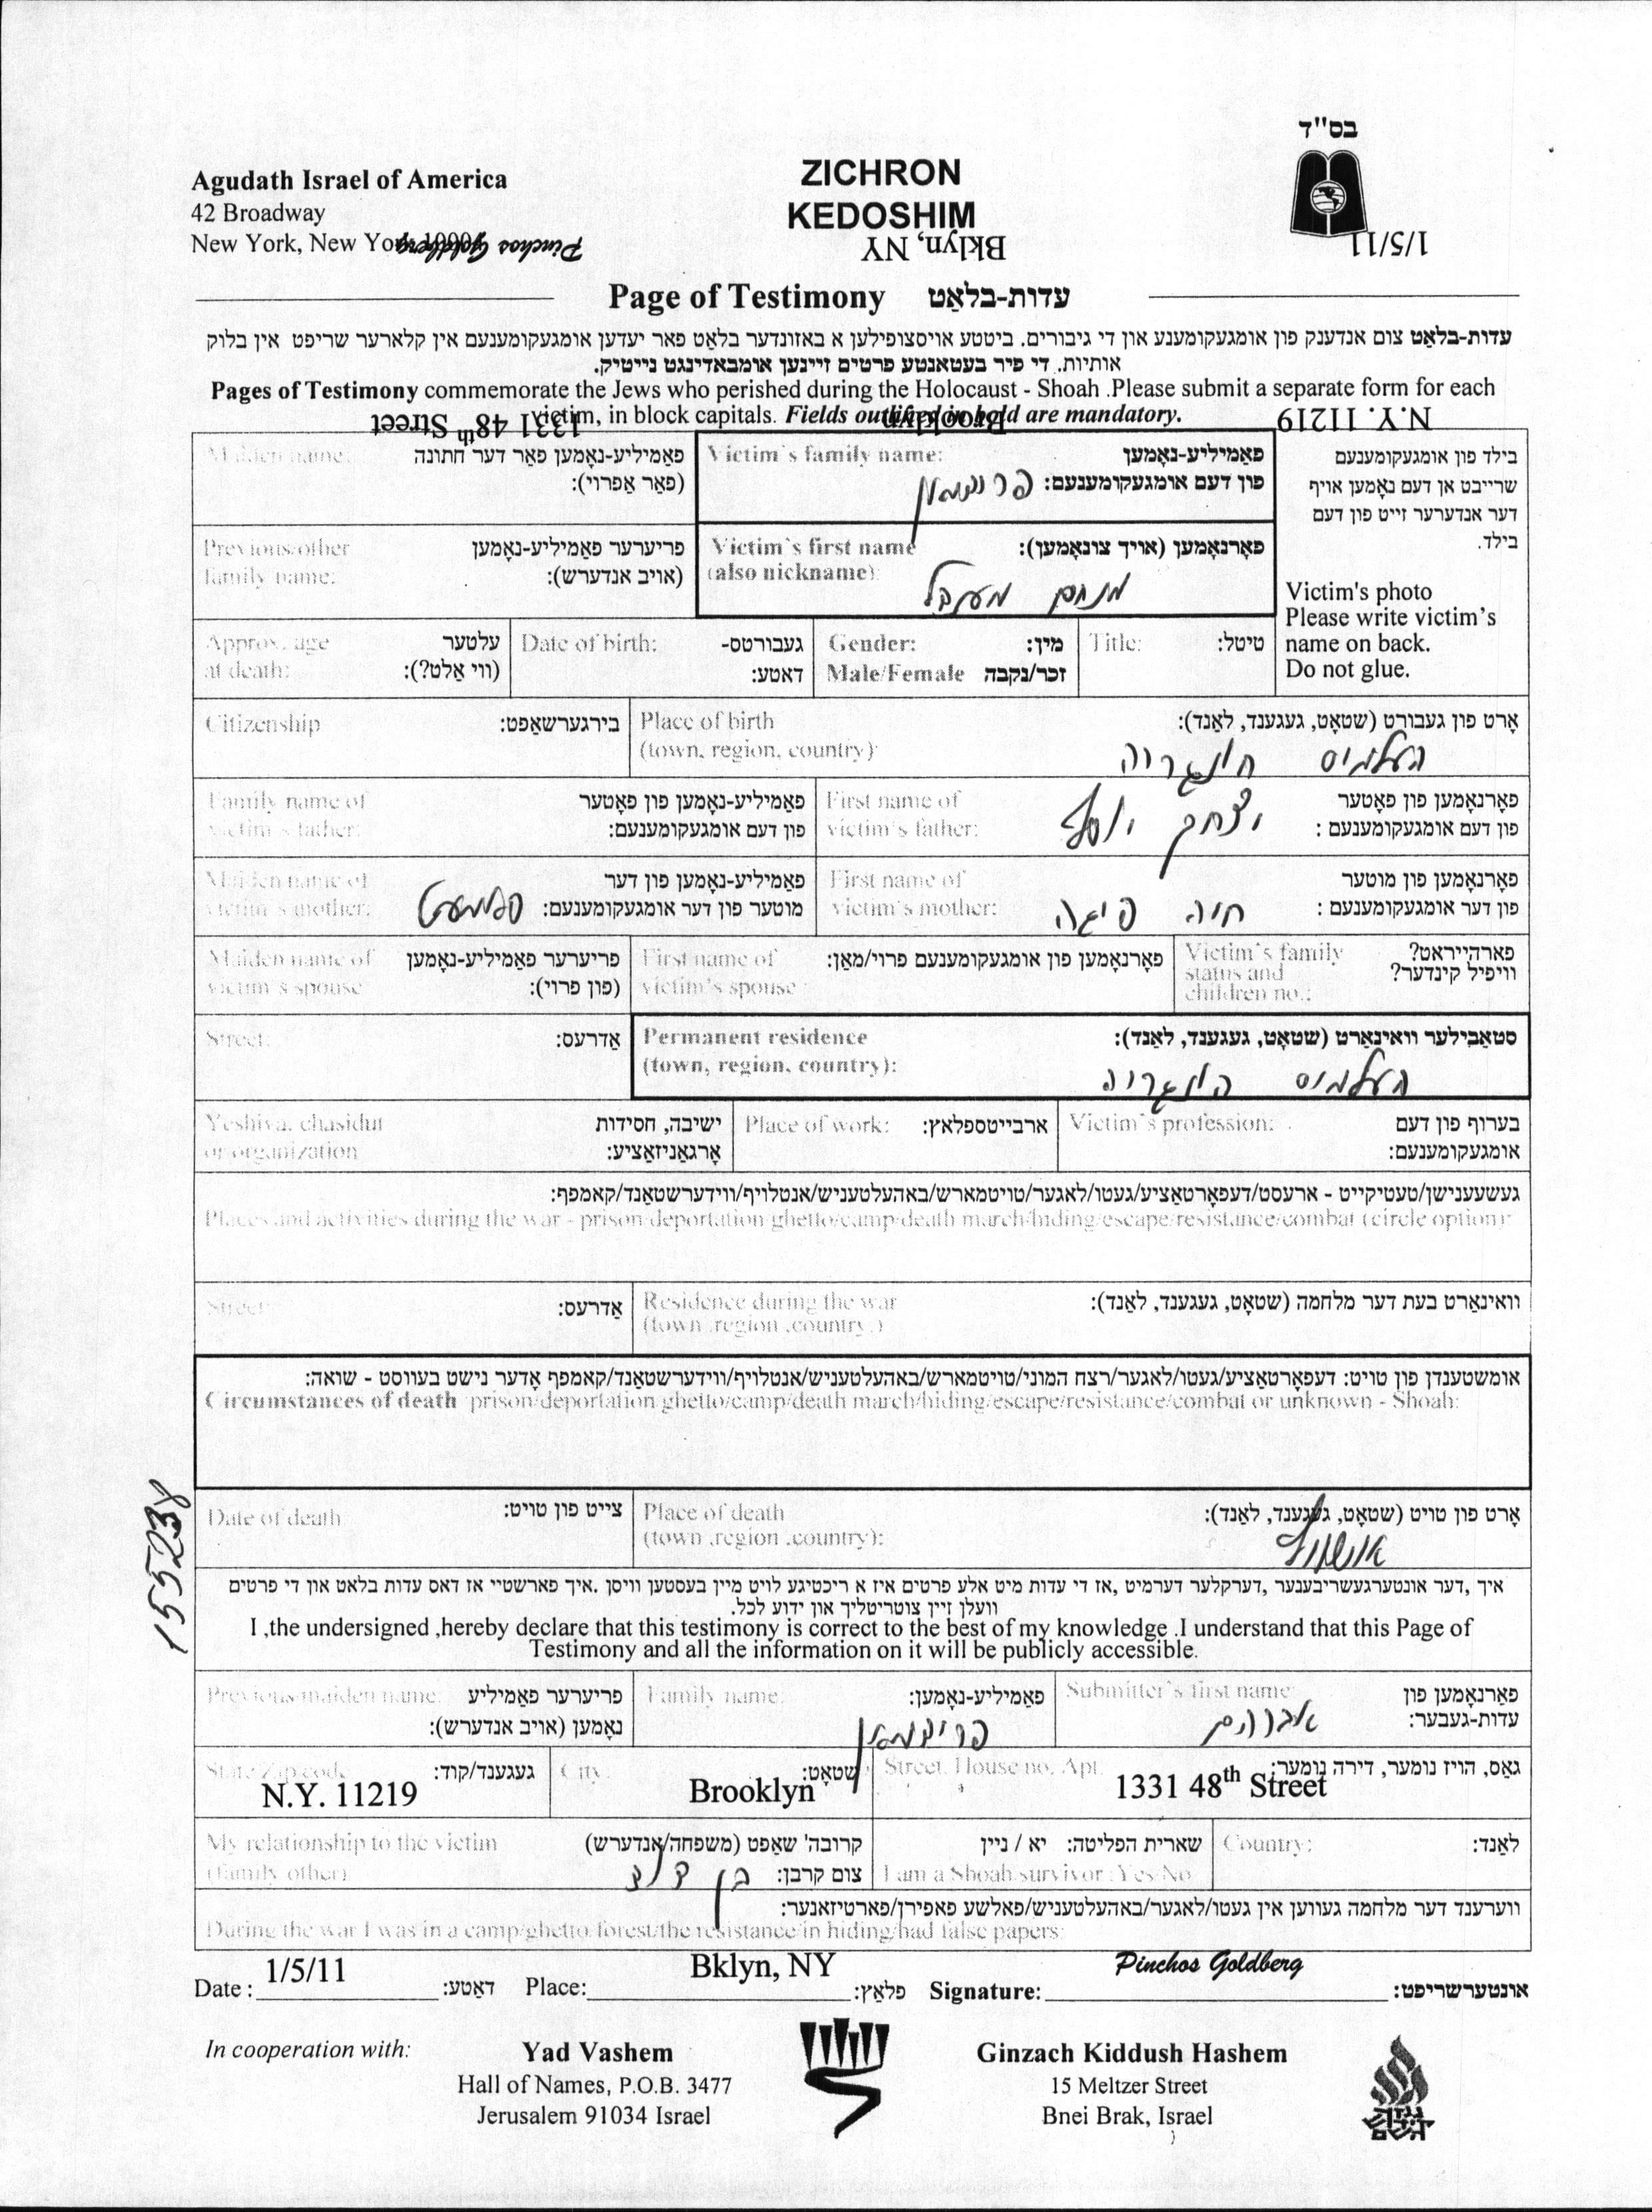 בס"ד
Agudath Israel of America
42 Broadway
New York, New York 10004
Pinchos Goldberg
ZICHRON
KEDOSHIM
Bklyn, NY
1/5/11
Page of Testimony עדות-בלאַט
עדות-בלאַט צום אנדענק פון אומגעקומענע און די גיבורים. ביטטע אויסצופילען א באזונדער בלאַט פאר יעדען אומגעקומענעם אין קלארער שריפט אין בלוק
אותיות. די פיר בעטאנטע פרטים זיינען אומבאדינגט נייטיק.
Pages of Testimony commemorate the Jews who perished during the Holocaust - Shoah .Please submit a separate form for each
victim, in block capitals. Fields outlined in bold are mandatory.
1331 48th Street Brooklyn N.Y. 11219
Maiden name: פאַמיליע-נאָמען פאַר דער חתונה
(פאַר אַפרוי):
Victim's family name: פאַמיליע-נאָמען
פון דעם אומגעקומענעם:
בילד פון אומגעקומענעם
שרייבט אן דעם נאָמען אויף
דער אנדערער זייט פון דעם
בילד.
Victim's photo
Please write victim's
name on back.
Do not glue.
Previous/other פריערער פאַמיליע-נאָמען
family name: (אויב אנדערש):
Victim's first name פאָרנאָמען (אויך צונאָמען):
(also nickname):
מנחם מענדל
Approx. age עלטער
at death: (ווי אַלט?):
Date of birth: געבורטס-
דאַטע:
Gender: מין:
Male/Female זכר/נקבה
Title: טיטל:
Citizenship בירגערשאַפט:
Place of birth אָרט פון געבורט (שטאָט, געגענד, לאַנד):
(town, region, country):
Family name of פאַמיליע-נאָמען פון פאָטער
victim's father: פון דעם אומגעקומענעם:
First name of פאָרנאָמען פון פאָטער
victim's father: פון דעם אומגעקומענעם :
יצחק יוסף
Maiden name of פאַמיליע-נאָמען פון דער
victim's mother: מוטער פון דער אומגעקומענעם:
First name of פאָרנאָמען פון מוטער
victim's mother: פון דער אומגעקומענעם :
חיה פיגה
Maiden name of פריערער פאַמיליע-נאָמען
victim's spouse (פון פרוי):
First name of פאָרנאָמען פון אומגעקומענעם פרוי/מאַן:
victim's spouse :
Victim's family פארהייראט?
status and וויפיל קינדער?
children no.:
Street: אַדרעס:
Permanent residence סטאַבילער וואינאָרט (שטאָט, געגענד, לאַנד):
(town, region, country):
Yeshiva, chasidut ישיבה, חסידות
or organization אָרגאַניזאַציע:
Place of work: ארבייטספלאץ:
Victim's profession: בערוף פון דעם
אומגעקומענעם:
געשעענישן/טעטיקייט - ארעסט/דעפאָרטאַציע/געטו/לאגער/טויטמארש/באהעלטעניש/אנטלויף/ווידערשטאַנד/קאמפף:
Places and activities during the war - prison/deportation/ghetto/camp/death march/hiding/escape/resistance/combat (circle option):
Street: אַדרעס:
Residence during the war וואינאָרט בעת דער מלחמה (שטאָט, געגענד, לאַנד):
(town ,region ,country.)
אומשטענדן פון טויט: דעפאָרטאַציע/געטו/לאגער/רצח המוני/טויטמארש/באהעלטעניש/אנטלויף/ווידערשטאַנד/קאמפף אָדער נישט בעווסט - שואה:
Circumstances of death prison/deportation/ghetto/camp/death march/hiding/escape/resistance/combat or unknown - Shoah:
155238
Date of death צייט פון טויט:
Place of death אָרט פון טויט (שטאָט, געגענד, לאַנד):
(town ,region ,country):
איך ,דער אונטערגעשריבענער ,דערקלער דערמיט ,אז די עדות מיט אלע פרטים איז א ריכטיגע לויט מיין בעסטען וויסן .איך פארשטיי אז דאס עדות בלאט און די פרטים
וועלן זיין צוטריטליך און ידוע לכל.
I ,the undersigned ,hereby declare that this testimony is correct to the best of my knowledge .I understand that this Page of
Testimony and all the information on it will be publicly accessible.
Previous/maiden name: פריערער פאַמיליע
נאָמען (אויב אנדערש):
Family name: פאַמיליע-נאָמען:
Submitter's first name: פאַרנאָמען פון
עדות-געבער:
אברהם
State/Zip code געגענד/קוד:
N.Y. 11219
City: שטאָט:
Brooklyn
Street, House no, Apt. גאַס, הויז נומער, דירה נומער:
1331 48th Street
My relationship to the victim קרובה' שאַפט (משפחה/אַנדערש)
(family/other) צום קרבן:
בן דוד
שארית הפליטה: יא / ניין
I am a Shoah survivor : Yes/No
Country: לאַנד:
ווערענד דער מלחמה געווען אין געטו/לאגער/באהעלטעניש/פאלשע פאפירן/פארטיזאנער:
During the war I was in a camp/ghetto/forest/the resistance/in hiding/had false papers:
Date : 1/5/11 דאַטע: Place: Bklyn, NY פלאַץ: Signature: Pinchos Goldberg אונטערשריפט:
In cooperation with:
Yad Vashem
Hall of Names, P.O.B. 3477
Jerusalem 91034 Israel
Ginzach Kiddush Hashem
15 Meltzer Street
Bnei Brak, Israel